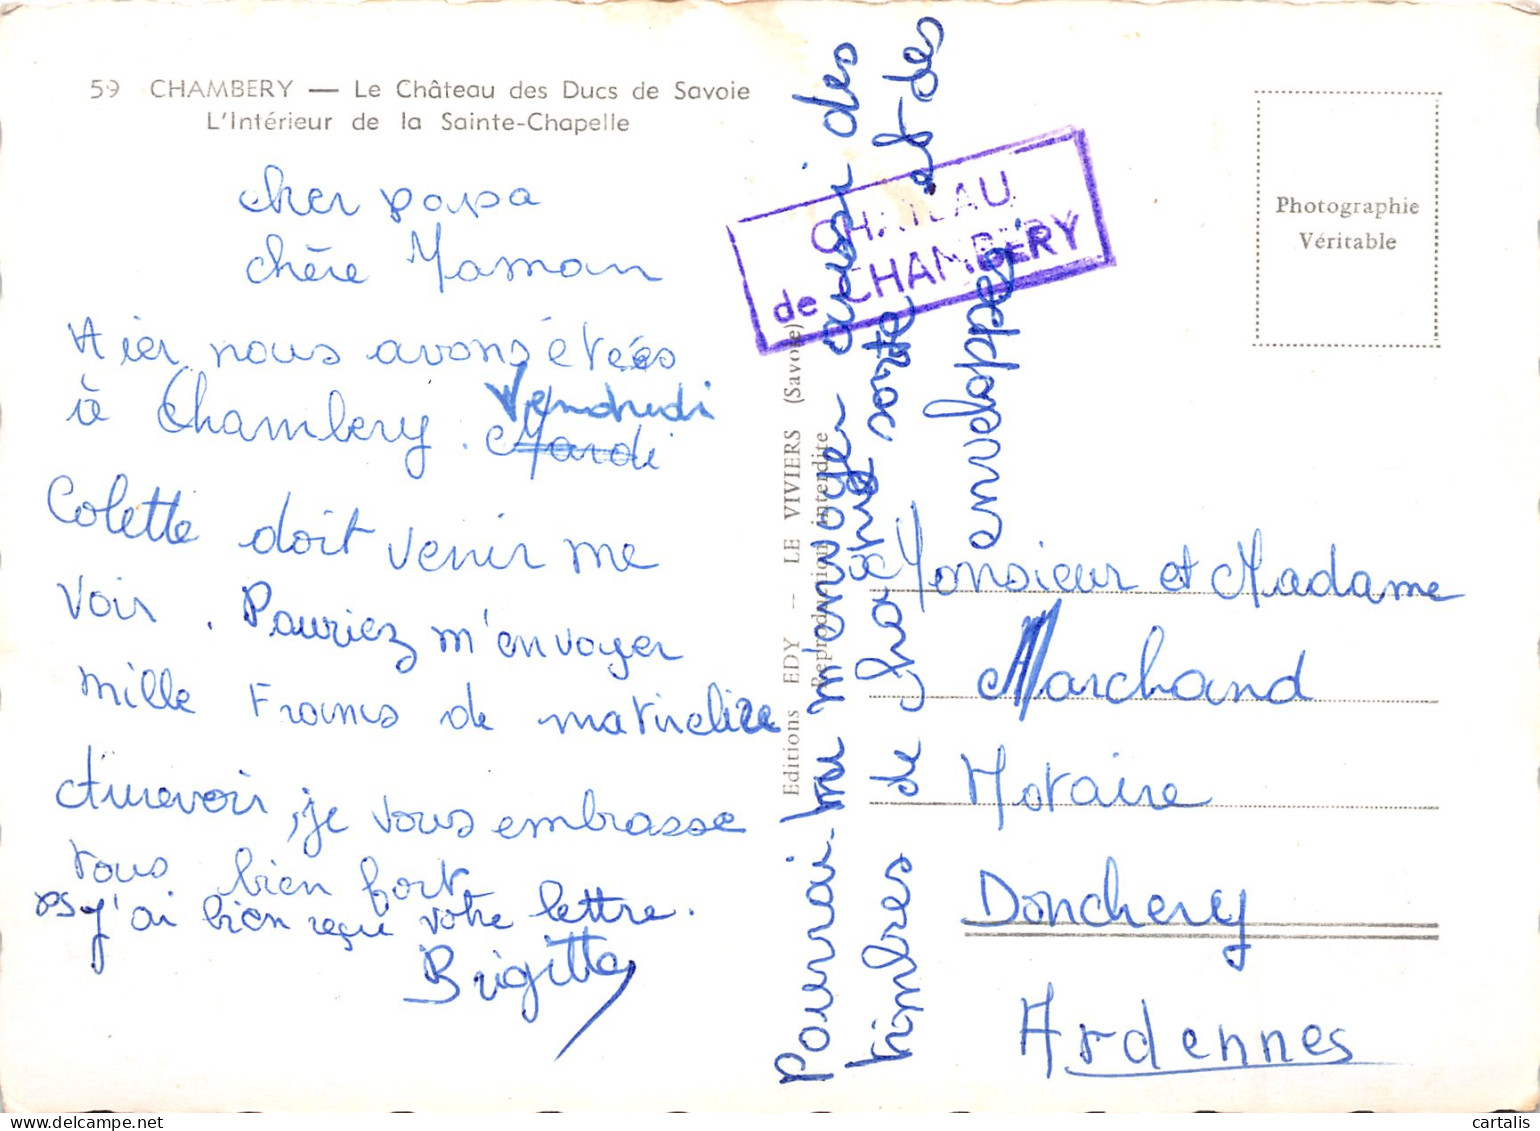 59 CHAMBERY — Le Château des Ducs de Savoie
L'Intérieur de la Sainte-Chapelle
cher papa
chère Maman
Hier nous avons étées
à Chambery. Mardi
Vendredi
Colette doit venir me
voir. Pouriez m'envoyer
mille Francs de
Aurevoir, je vous embrasse
tous bien fort
PS J'ai bien reçu votre lettre.
Brigitte
Pourrai-tu m'envoyer aussi des
timbres de
sorte et des
enveloppes.
CHATEAU
de CHAMBERY
Editions EDY — LE VIVIERS (Savoie)
Reproduction interdite
Photographie
Véritable
Monsieur et Madame
Marchand
Notaire
Donchery
Ardennes
cartalis